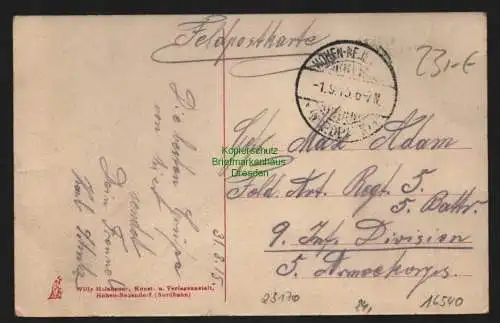 Feldpostkarte
23,-€
HOHEN-NE
-1.9.15.6-7N.
Max Adam
Feld. Art. Regt. 5
5. Battr.
9. Inf. Division
5. Armeekorps.
Die besten Grüße
von hier
sendet
Dein Freund
31.8.15.
Kopierschutz
Briefmarkenhaus
Dresden
Willy Holzheuer, Kunst- u. Verlagsanstalt,
Hohen-Neuendorf (Nordbahn)
23170
16540